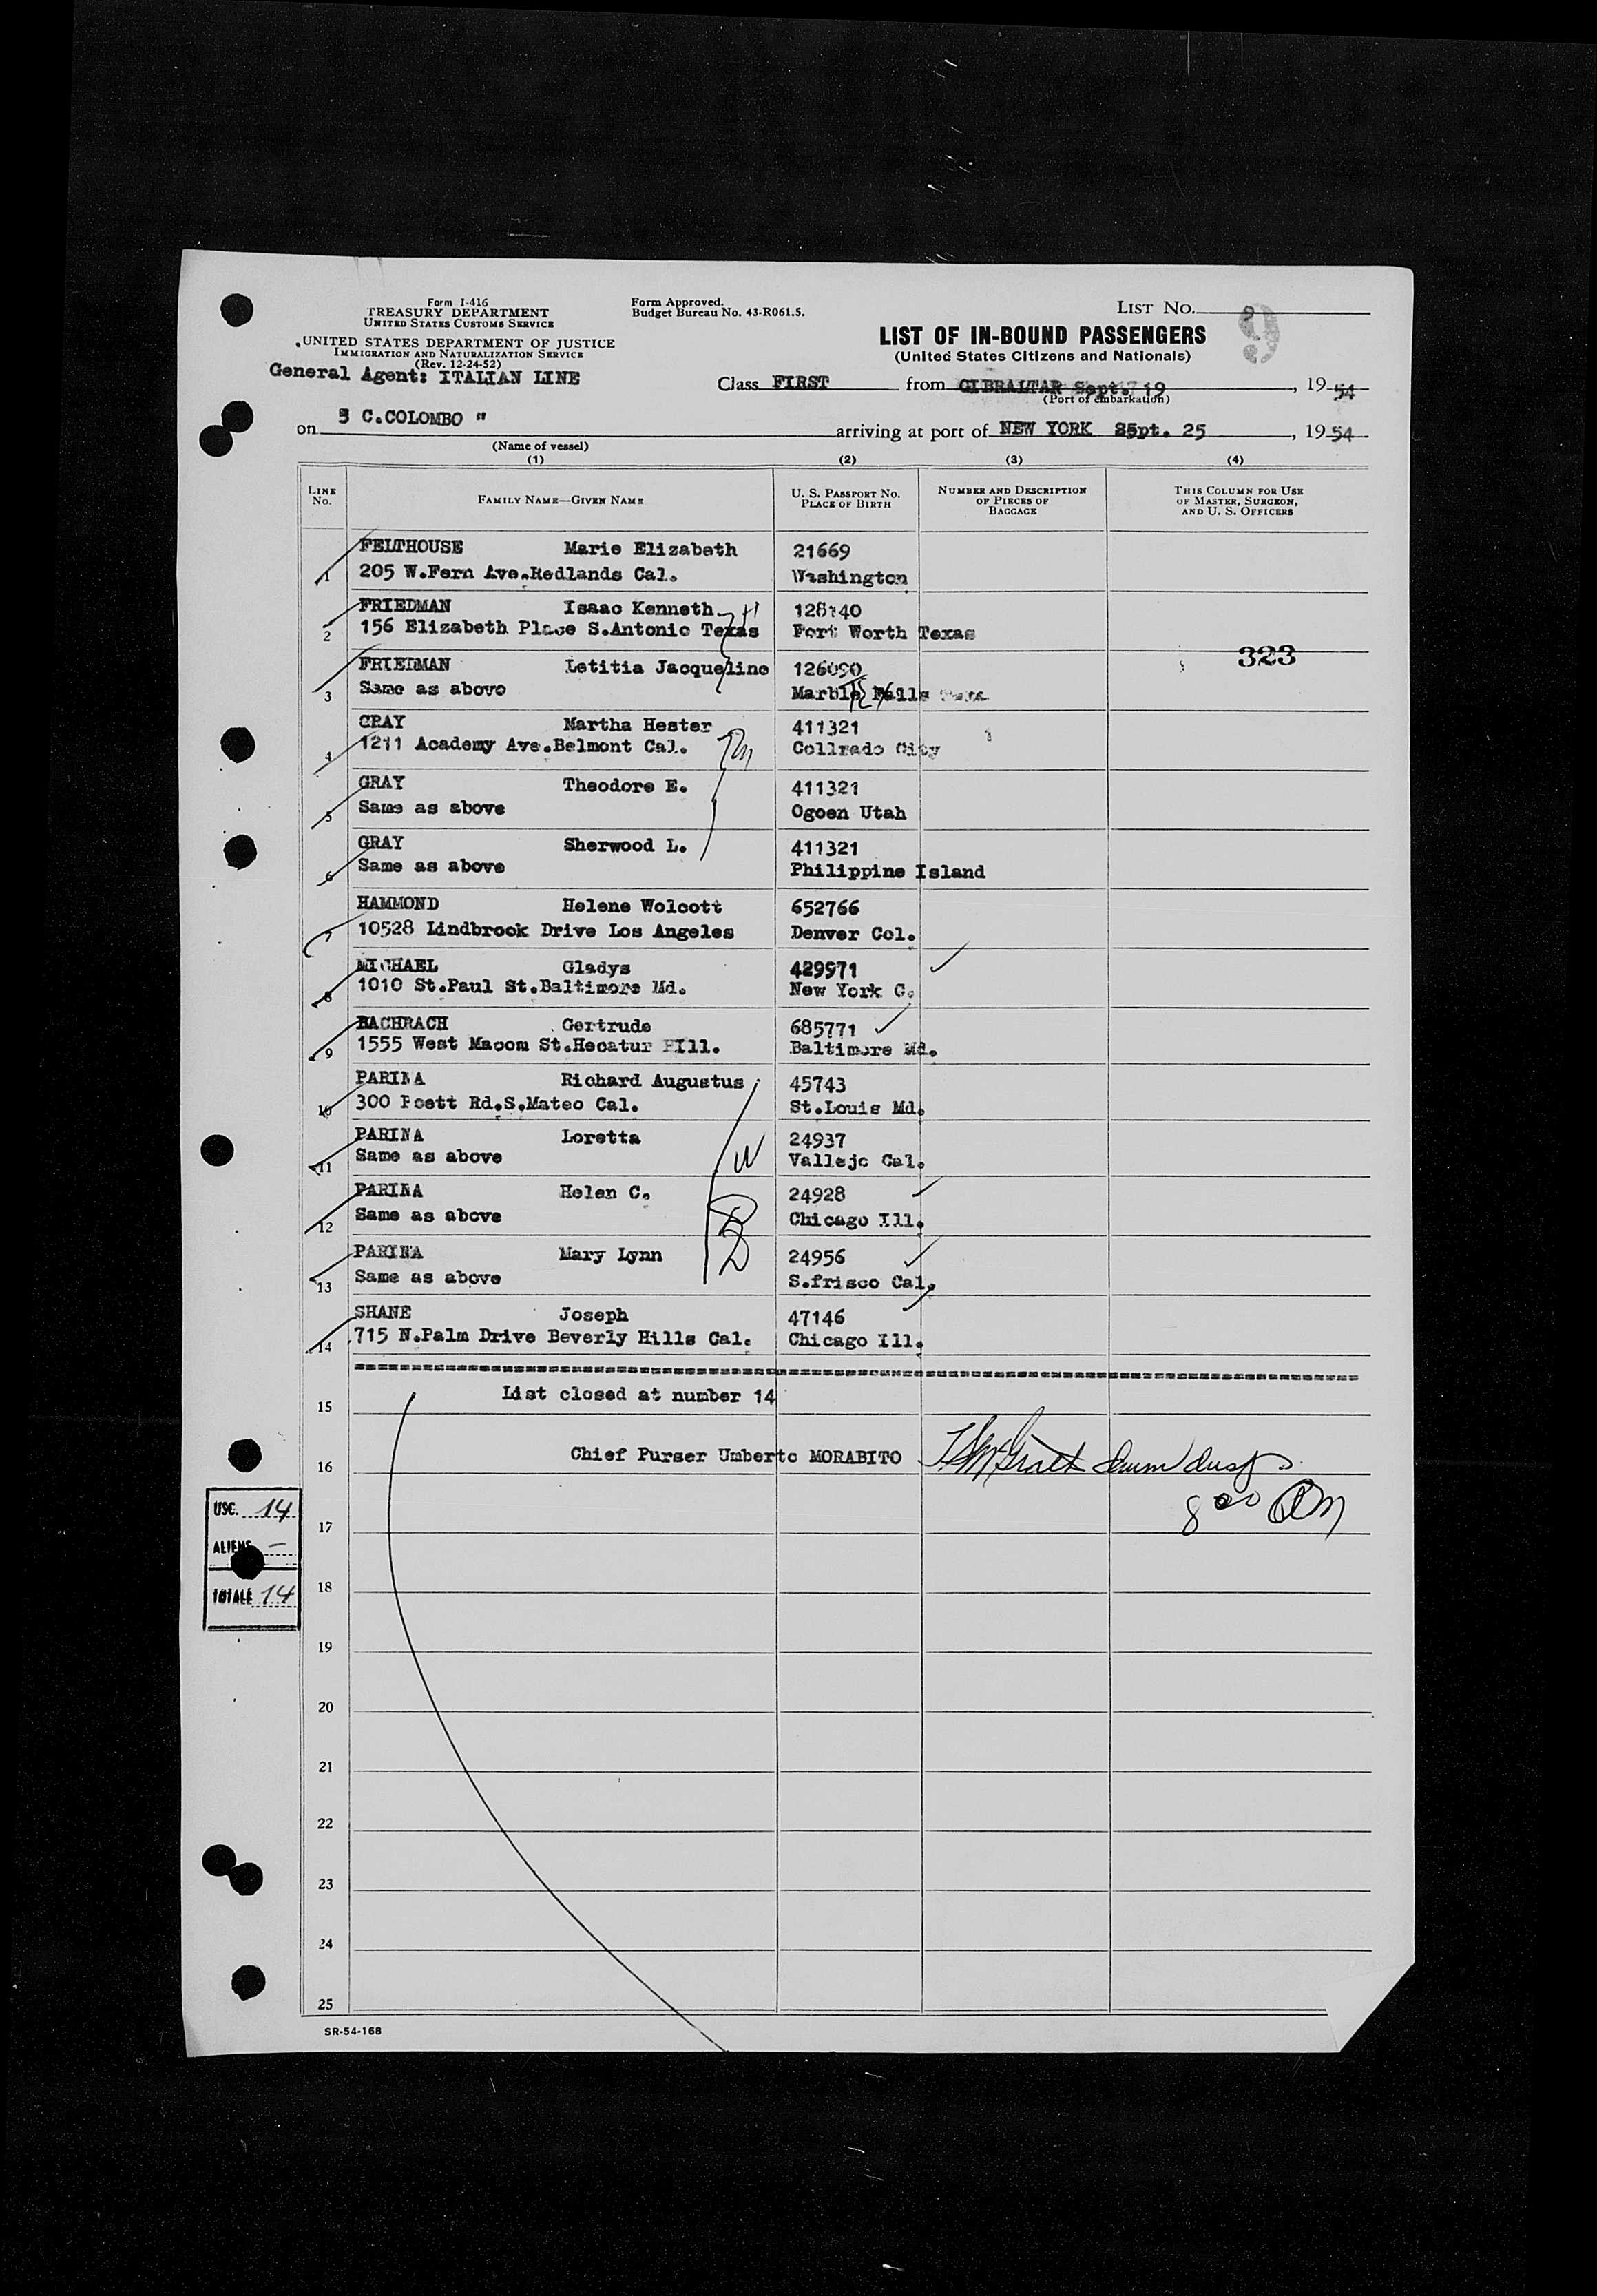 Form I-416
TREASURY DEPARTMENT
UNITED STATES CUSTOMS SERVICE
UNITED STATES DEPARTMENT OF JUSTICE
IMMIGRATION AND NATURALIZATION SERVICE
(Rev. 12-24-52)
General Agent: ITALIAN LINE
Form Approved.
Budget Bureau No. 43-R061.5.
LIST NO. 9
9
LIST OF IN-BOUND PASSENGERS
(United States Citizens and Nationals)
Class FIRST from GIBRALTAR Sept. 19, 1954
(Port of embarkation)
on C.COLOMBO " arriving at port of NEW YORK Sept. 25, 1954
(Name of vessel)
(1) (2) (3) (4)
LINE NO.
FAMILY NAME—GIVEN NAME
U. S. PASSPORT NO.
PLACE OF BIRTH
NUMBER AND DESCRIPTION
OF PIECES OF
BAGGAGE
THIS COLUMN FOR USE
OF MASTER, SURGEON,
AND U. S. OFFICERS
FELTHOUSE Marie Elizabeth 21669
1 205 W.Fern Ave.Redlands Cal. Washington
FRIEDMAN Isaac Kenneth 128140
2 156 Elizabeth Place S.Antonio Texas Fort Worth Texas
323
FRIEDMAN Letitia Jacqueline 126090
3 Same as above Marble Falls
GRAY Martha Hester 411321
4 1211 Academy Ave.Belmont Cal. Collrado City
GRAY Theodore E. 411321
5 Same as above Ogoen Utah
GRAY Sherwood L. 411321
6 Same as above Philippine Island
HAMMOND Helene Wolcott 652766
7 10528 Lindbrook Drive Los Angeles Denver Col.
MICHAEL Gladys 429971
8 1010 St.Paul St.Baltimore Md. New York C.
BACHRACH Gertrude 685771
9 1555 West Macom St.Hecatur Ill. Baltimore Md.
PARINA Richard Augustus 45743
10 300 Poett Rd.S.Mateo Cal. St.Louis Md.
PARINA Loretta 24937
11 Same as above Vallejo Cal.
PARINA Helen C. 24928
12 Same as above Chicago Ill.
PARINA Mary Lynn 24956
13 Same as above S.frisco Cal.
SHANE Joseph 47146
14 715 N.Palm Drive Beverly Hills Cal. Chicago Ill.
List closed at number 14
15
Chief Purser Umberto MORABITO
16
8 00 AM
USC. 14
17
ALIENS –
18
TOTALE 14
19
20
21
22
23
24
25
SR-54-168